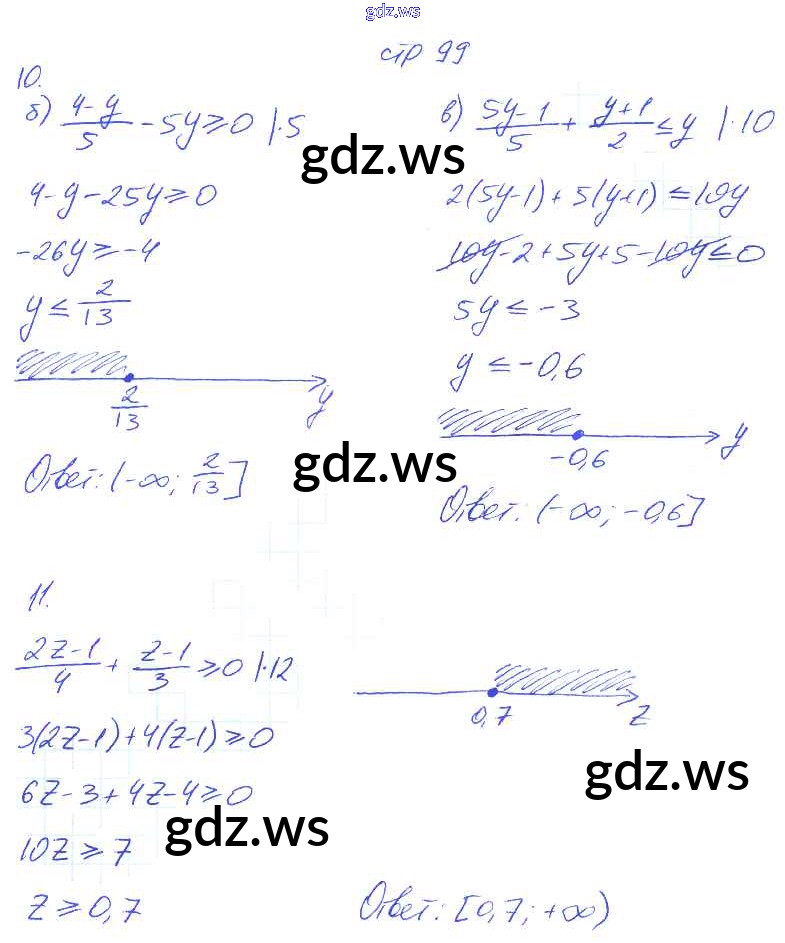 gdz.ws
стр 99
10.
б) (4-y)/5 - 5y ≥ 0 |·5
4-y-25y ≥ 0
-26y ≥ -4
y ≤ 2/13
2/13 y
Ответ: (-∞; 2/13]
в) (5y-1)/5 + (y+1)/2 ≤ y |·10
gdz.ws
2(5y-1)+5(y+1) ≤ 10y
10y-2+5y+5-10y ≤ 0
5y ≤ -3
y ≤ -0,6
-0,6 y
gdz.ws
Ответ: (-∞; -0,6]
11.
(2z-1)/4 + (z-1)/3 ≥ 0 |·12
3(2z-1)+4(z-1) ≥ 0
6z-3+4z-4 ≥ 0
gdz.ws
10z ≥ 7
z ≥ 0,7
0,7 z
gdz.ws
Ответ: [0,7; +∞)